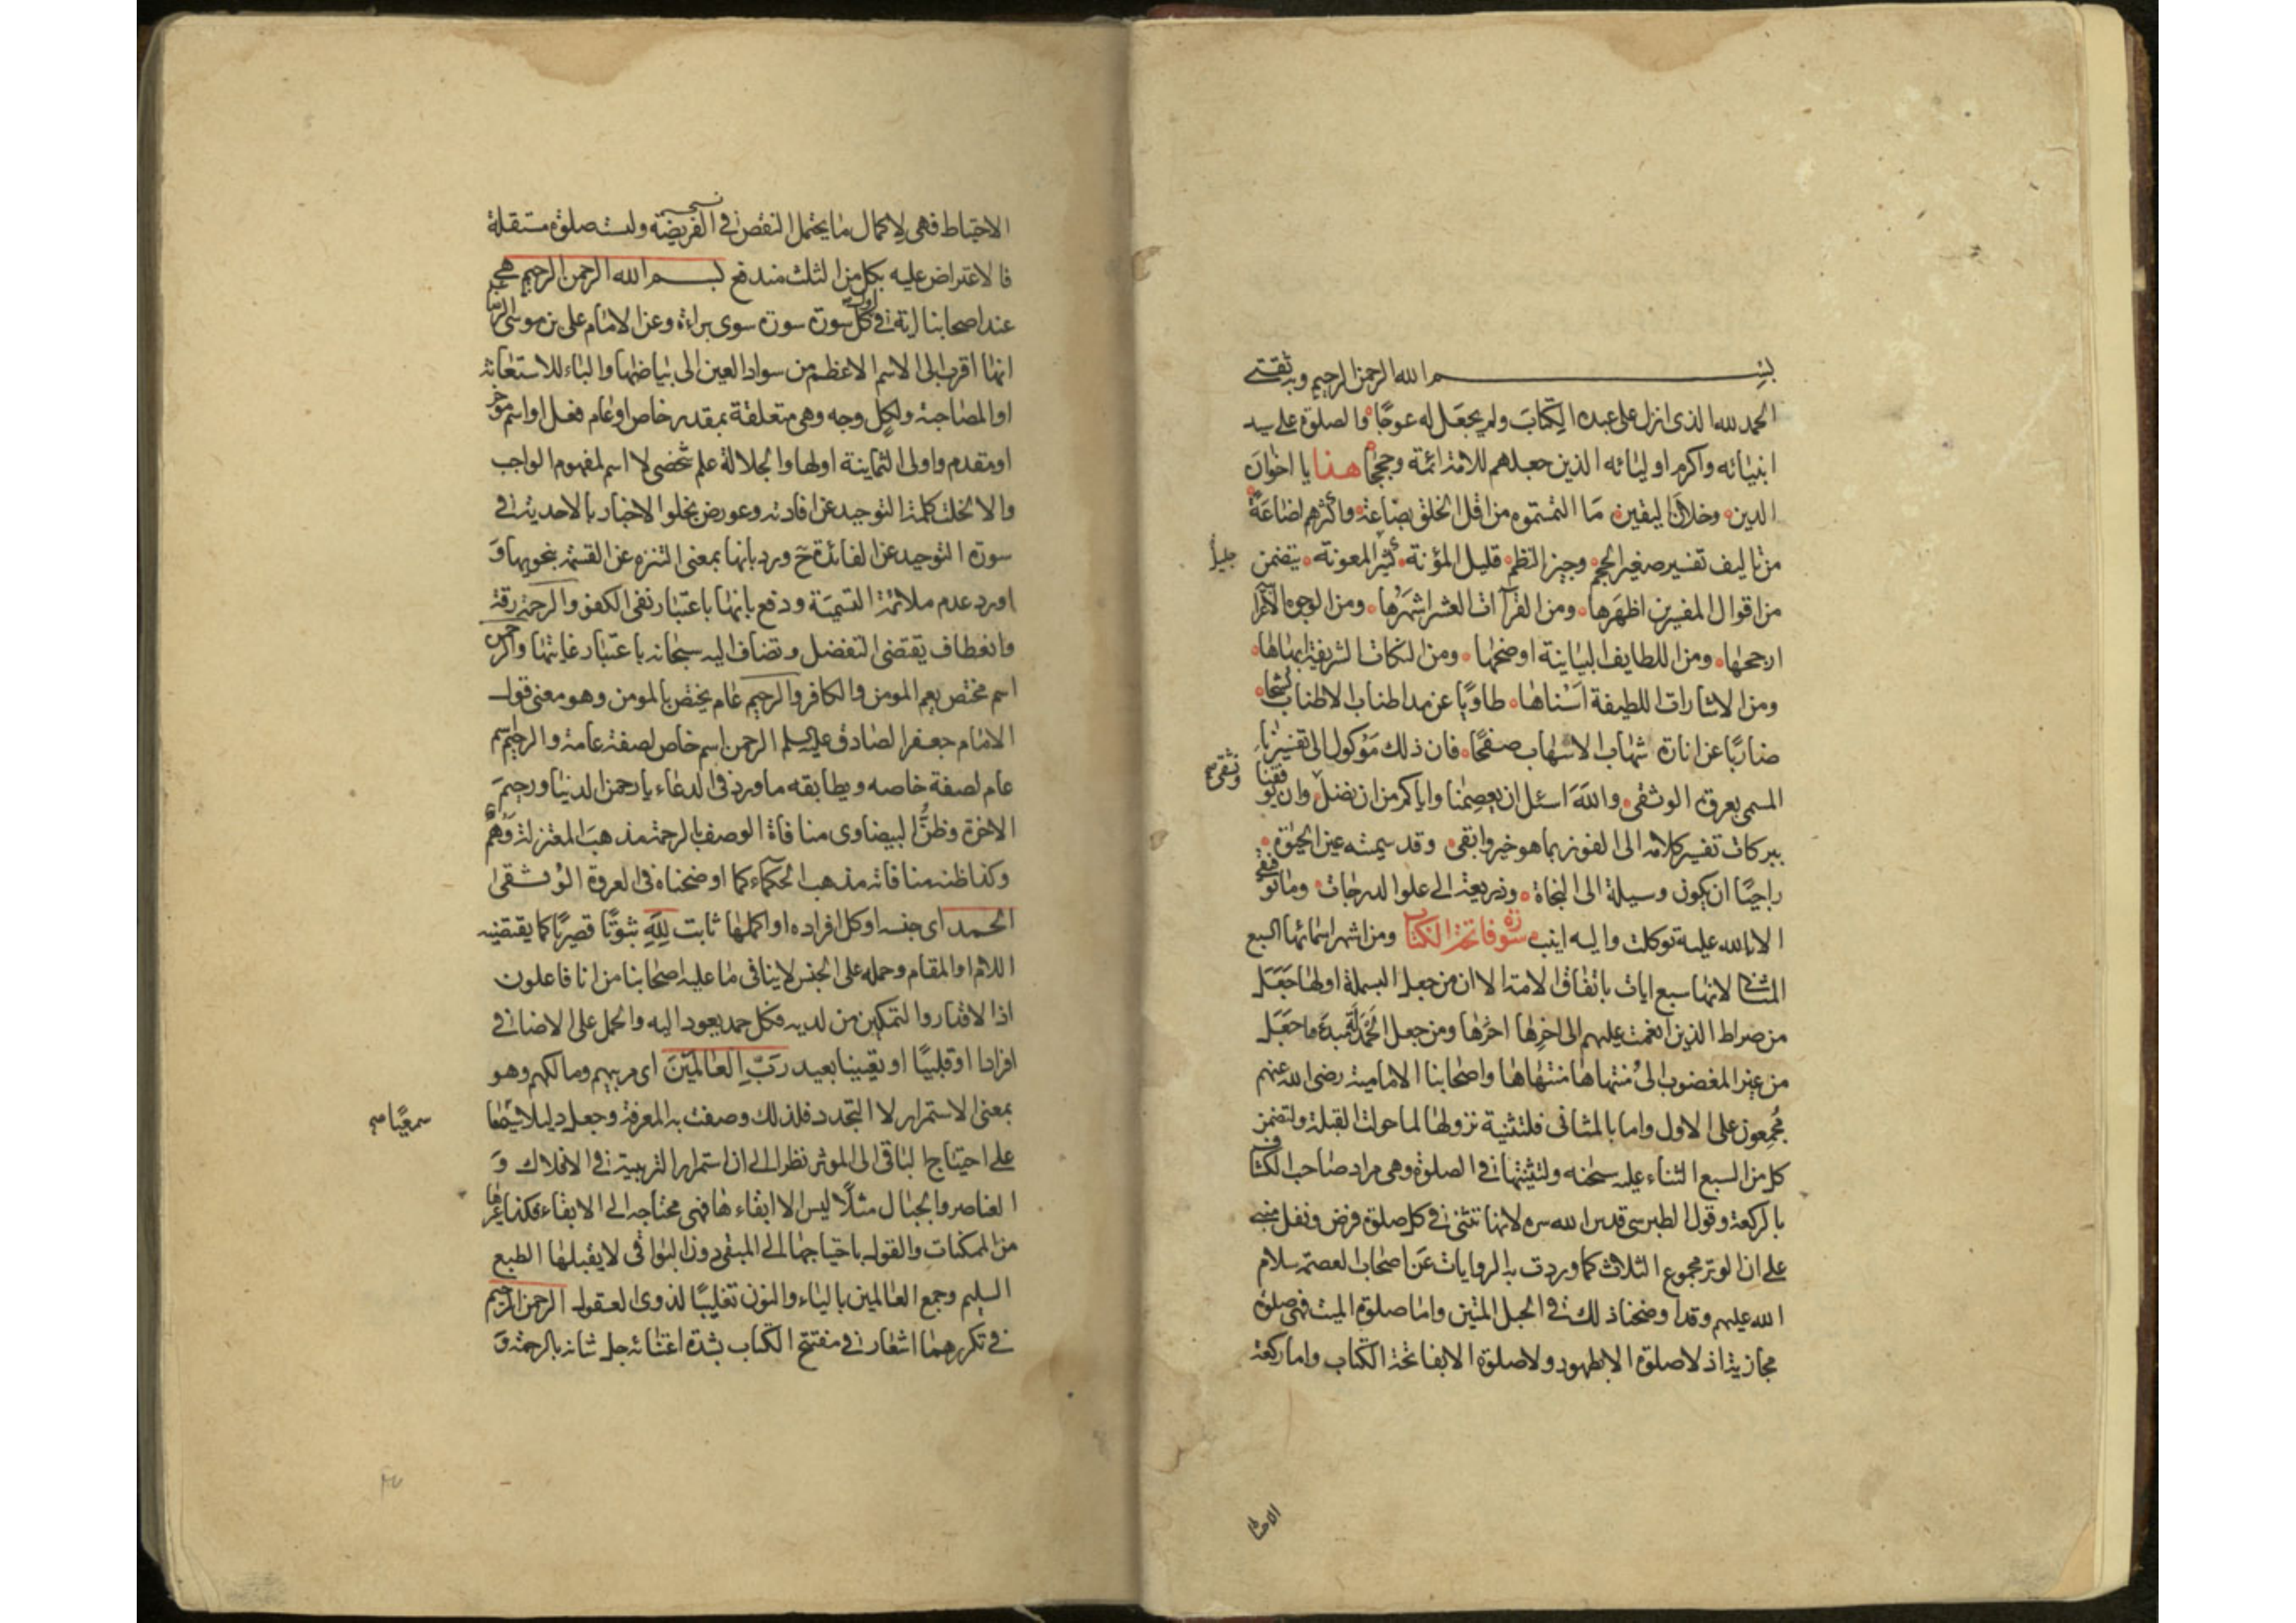 بسم الله الرحمن الرحيم وبه ثقتي
الحمد لله الذى انزل على عبده الكتاب ولم يجعل له عوجًا والصلوة على سيد
انبيائه واكرم اوليائه الذين جعلهم للامة ائمة وحججًا هذا يا اخوان
الدين وخلان اليقين ما التمستموه من اقل الخلق بضاعة واكثرهم اضاعةً
من تاليف تفسير صغير الحجم وجيز النظم قليل المؤنة كثير المعونة يتضمن
جليل
من اقوال المفسرين اظهرها ومن القرآات العشر اشهرها ومن الوجوه الاعراب
ارجحها ومن اللطايف البيانية اوضحها ومن النكات الشريفة ابهاها
ومن الاشارات اللطيفة اسناها طاويًا عن مد اطناب الاطناب كشحا
ضاربًا عن انارة شهاب الاسهاب صفحًا فان ذلك موكول الى تفسيرنا
المسمى بعروة الوثقى والله اسئل ان يعصمنا واياكم من ان نضل وان يوفقنا
ونشقى
ببركات تفسير كلامه الى الفوز بما هو خير وابقى وقد سميته عين الحيوة
راجيًا ان يكون وسيلة الى النجاة وذريعة الى علو الدرجات وما توفيقى
الا بالله عليه توكلت واليه انيب سورة فاتحة الكتاب ومن اشهر اسمائها السبع
المثانى لانها سبع ايات باتفاق الامة الا ان من جعل البسملة اولها جعل
من صراط الذين انعمت عليهم الى اخرها اخرها ومن جعل الحمد لله مبدءها جعل
من غير المغضوب الى منتهاها منتهاها واصحابنا الامامية رضى الله عنهم
مجمعون على الاول واما بالمثانى فلتثنية نزولها لما حولت القبلة ولتضمن
كل من السبع الثناء عليه سبحنه ولتثنيتها فى الصلوة وهى مراد صاحب الكشاف
بالركعة وقول الطبرسى قدس الله سره لانها تثنى فى كل صلوة فرض ونفل مبنى
على ان الوتر مجموع الثلاث كما وردت به الروايات عن اصحاب العصمة سلام
الله عليهم وقد اوضحنا ذلك فى الحبل المتين واما صلوة الميت فهى صلوة
مجازية اذ لا صلوة الا بطهور ولا صلوة الا بفاتحة الكتاب واما ركعة
الاحتياط
الاحتياط فهى لاكمال ما يحتمل النقص فى الفريضة وليست صلوة مستقلة
فالاعتراض عليه بكل من الثلث مندفع بسم الله الرحمن الرحيم هى
عند اصحابنا اية فى اول كل سورة سورة سوى براءة وعن الامام على بن موسى الرضا
انها اقرب الى الاسم الاعظم من سواد العين الى بياضها والباء للاستعانة
او المصاحبة ولكل وجه وهى متعلقة بمقدر خاص او عام فعل او اسم موخر
او متقدم واولى الثمانية اولها والجلالة علم شخصى لا اسم لمفهوم الواجب
والا لخلت كلمة التوحيد عن افادته وعورض بخلو الاخبار بالاحدية فى
سورة التوحيد عن الفائدة ح ورد بانها بمعنى التنزه عن القسمة بنحويها و
اورد عدم ملائمة التسمية ودفع بانها باعتبار نفى الكفو والرحمة رقة
وانعطاف يقتضى التفضل وتضاف اليه سبحانه باعتبار غايتها والرحمن
اسم مختص يعم المومن والكافر والرحيم عام يختص بالمومن وهو معنى قول
الامام جعفر الصادق عليه السلم الرحمن اسم خاص لصفة عامة والرحيم اسم
عام لصفة خاصه ويطابقه ما ورد فى الدعاء يا رحمن الدنيا ورحيم
الاخرة وظن البيضاوى منافاة الوصف بالرحمة مذهب المعتزلة وهم
وكذا ظنه منافاته مذهب الحكماء كما اوضحناه فى العروة الوثقى
الحمد اى جنسه او كل افراده او اكملها ثابت لله ثبوتًا قصريًا كما يقتضيه
اللام او المقام وحمله على الجنس لا ينافى ما عليه اصحابنا من انا فاعلون
اذ الاقدار والتمكين من لديه فكل حمد يعود اليه والحمل على الاضافى
افرادا او قلبيًا او تعيينا بعيد رب العالمين اى مربيهم ومالكهم وهو
بمعنى الاستمرار لا التجدد فلذلك وصفت به المعرفة وجعل دليلا سمعيا
سمعيًا
على احتياج الباقى الى الموثر نظرا الى ان استمرار التربية فى الافلاك و
العناصر والجبال مثلًا ليس الا ابقاءها فهى محتاجه الى الابقاء فكذا غيرها
من الممكنات والقول باحتياجها الى المبقى دون البواقى لا يقبلها الطبع
السليم وجمع العالمين بالياء والنون تغليبًا لذوى العقول الرحمن الرحيم
فى تكررهما اشعار فى مفتتح الكتاب بشدة اعتنائه جل شانه بالرحمة و